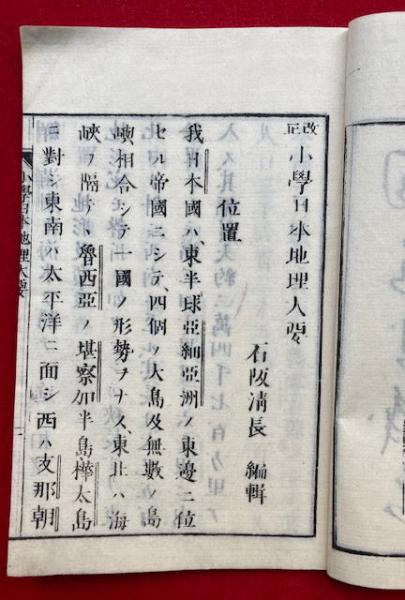 改正 小學日本地理大要
石阪淸長 編輯
位置
我日本國ハ東半球亞細亞洲ノ東邊ニ位
セル帝國ニシテ、四個ノ大島及無數ノ島
嶼相合シテ一國ノ形勢ヲナス、東北ハ海
峽ヲ隔テ魯西亞ノ堪察加半島樺太島
ニ對シ東南ハ太平洋ニ面シ西ハ支那朝
小學日本地理大要
一